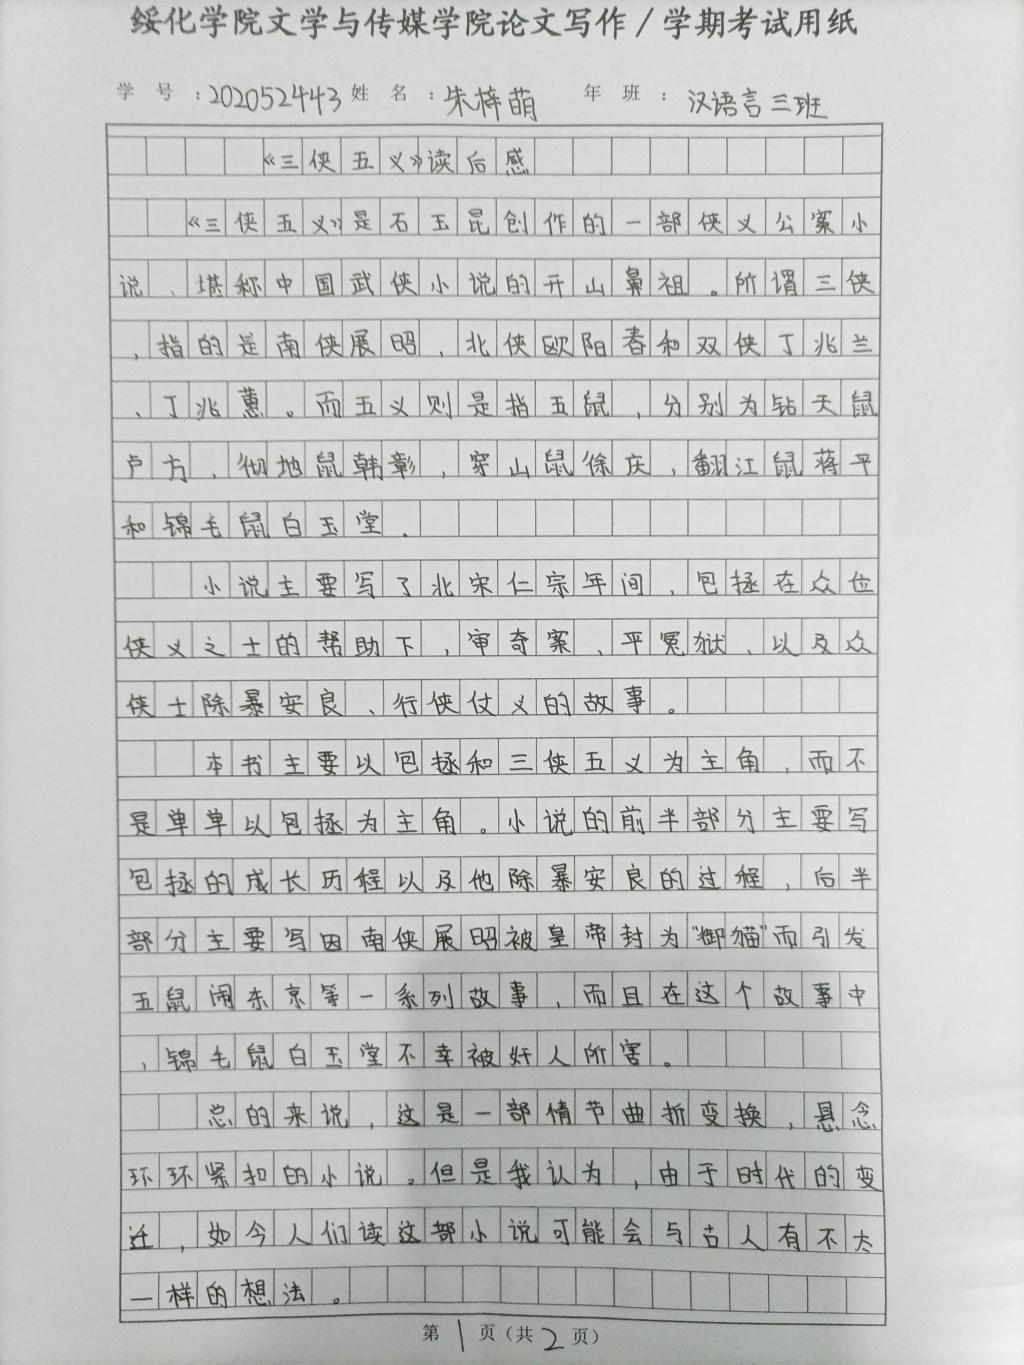 绥化学院文学与传媒学院论文写作/学期考试用纸
学 号:202052443 姓 名:朱梓萌 年 班:汉语言三班
《三侠五义》读后感
《三侠五义》是石玉昆创作的一部侠义公案小
说、堪称中国武侠小说的开山鼻祖。所谓三侠
,指的是南侠展昭,北侠欧阳春和双侠丁兆兰
、丁兆蕙。而五义则是指五鼠,分别为钻天鼠
卢方,彻地鼠韩彰,穿山鼠徐庆,翻江鼠蒋平
和锦毛鼠白玉堂.
小说主要写了北宋仁宗年间,包拯在众位
侠义之士的帮助下,审奇案、平冤狱、以及众
侠士除暴安良、行侠仗义的故事。
本书主要以包拯和三侠五义为主角,而不
是单单以包拯为主角。小说的前半部分主要写
包拯的成长历程以及他除暴安良的过程,后半
部分主要写因南侠展昭被皇帝封为"御猫"而引发
五鼠闹东京等一系列故事,而且在这个故事中
,锦毛鼠白玉堂不幸被奸人所害。
总的来说,这是一部情节曲折变换,悬念
环环紧扣的小说。但是我认为,由于时代的变
迁,如今人们读这部小说可能会与古人有不太
一样的想法。
第1页(共2页)